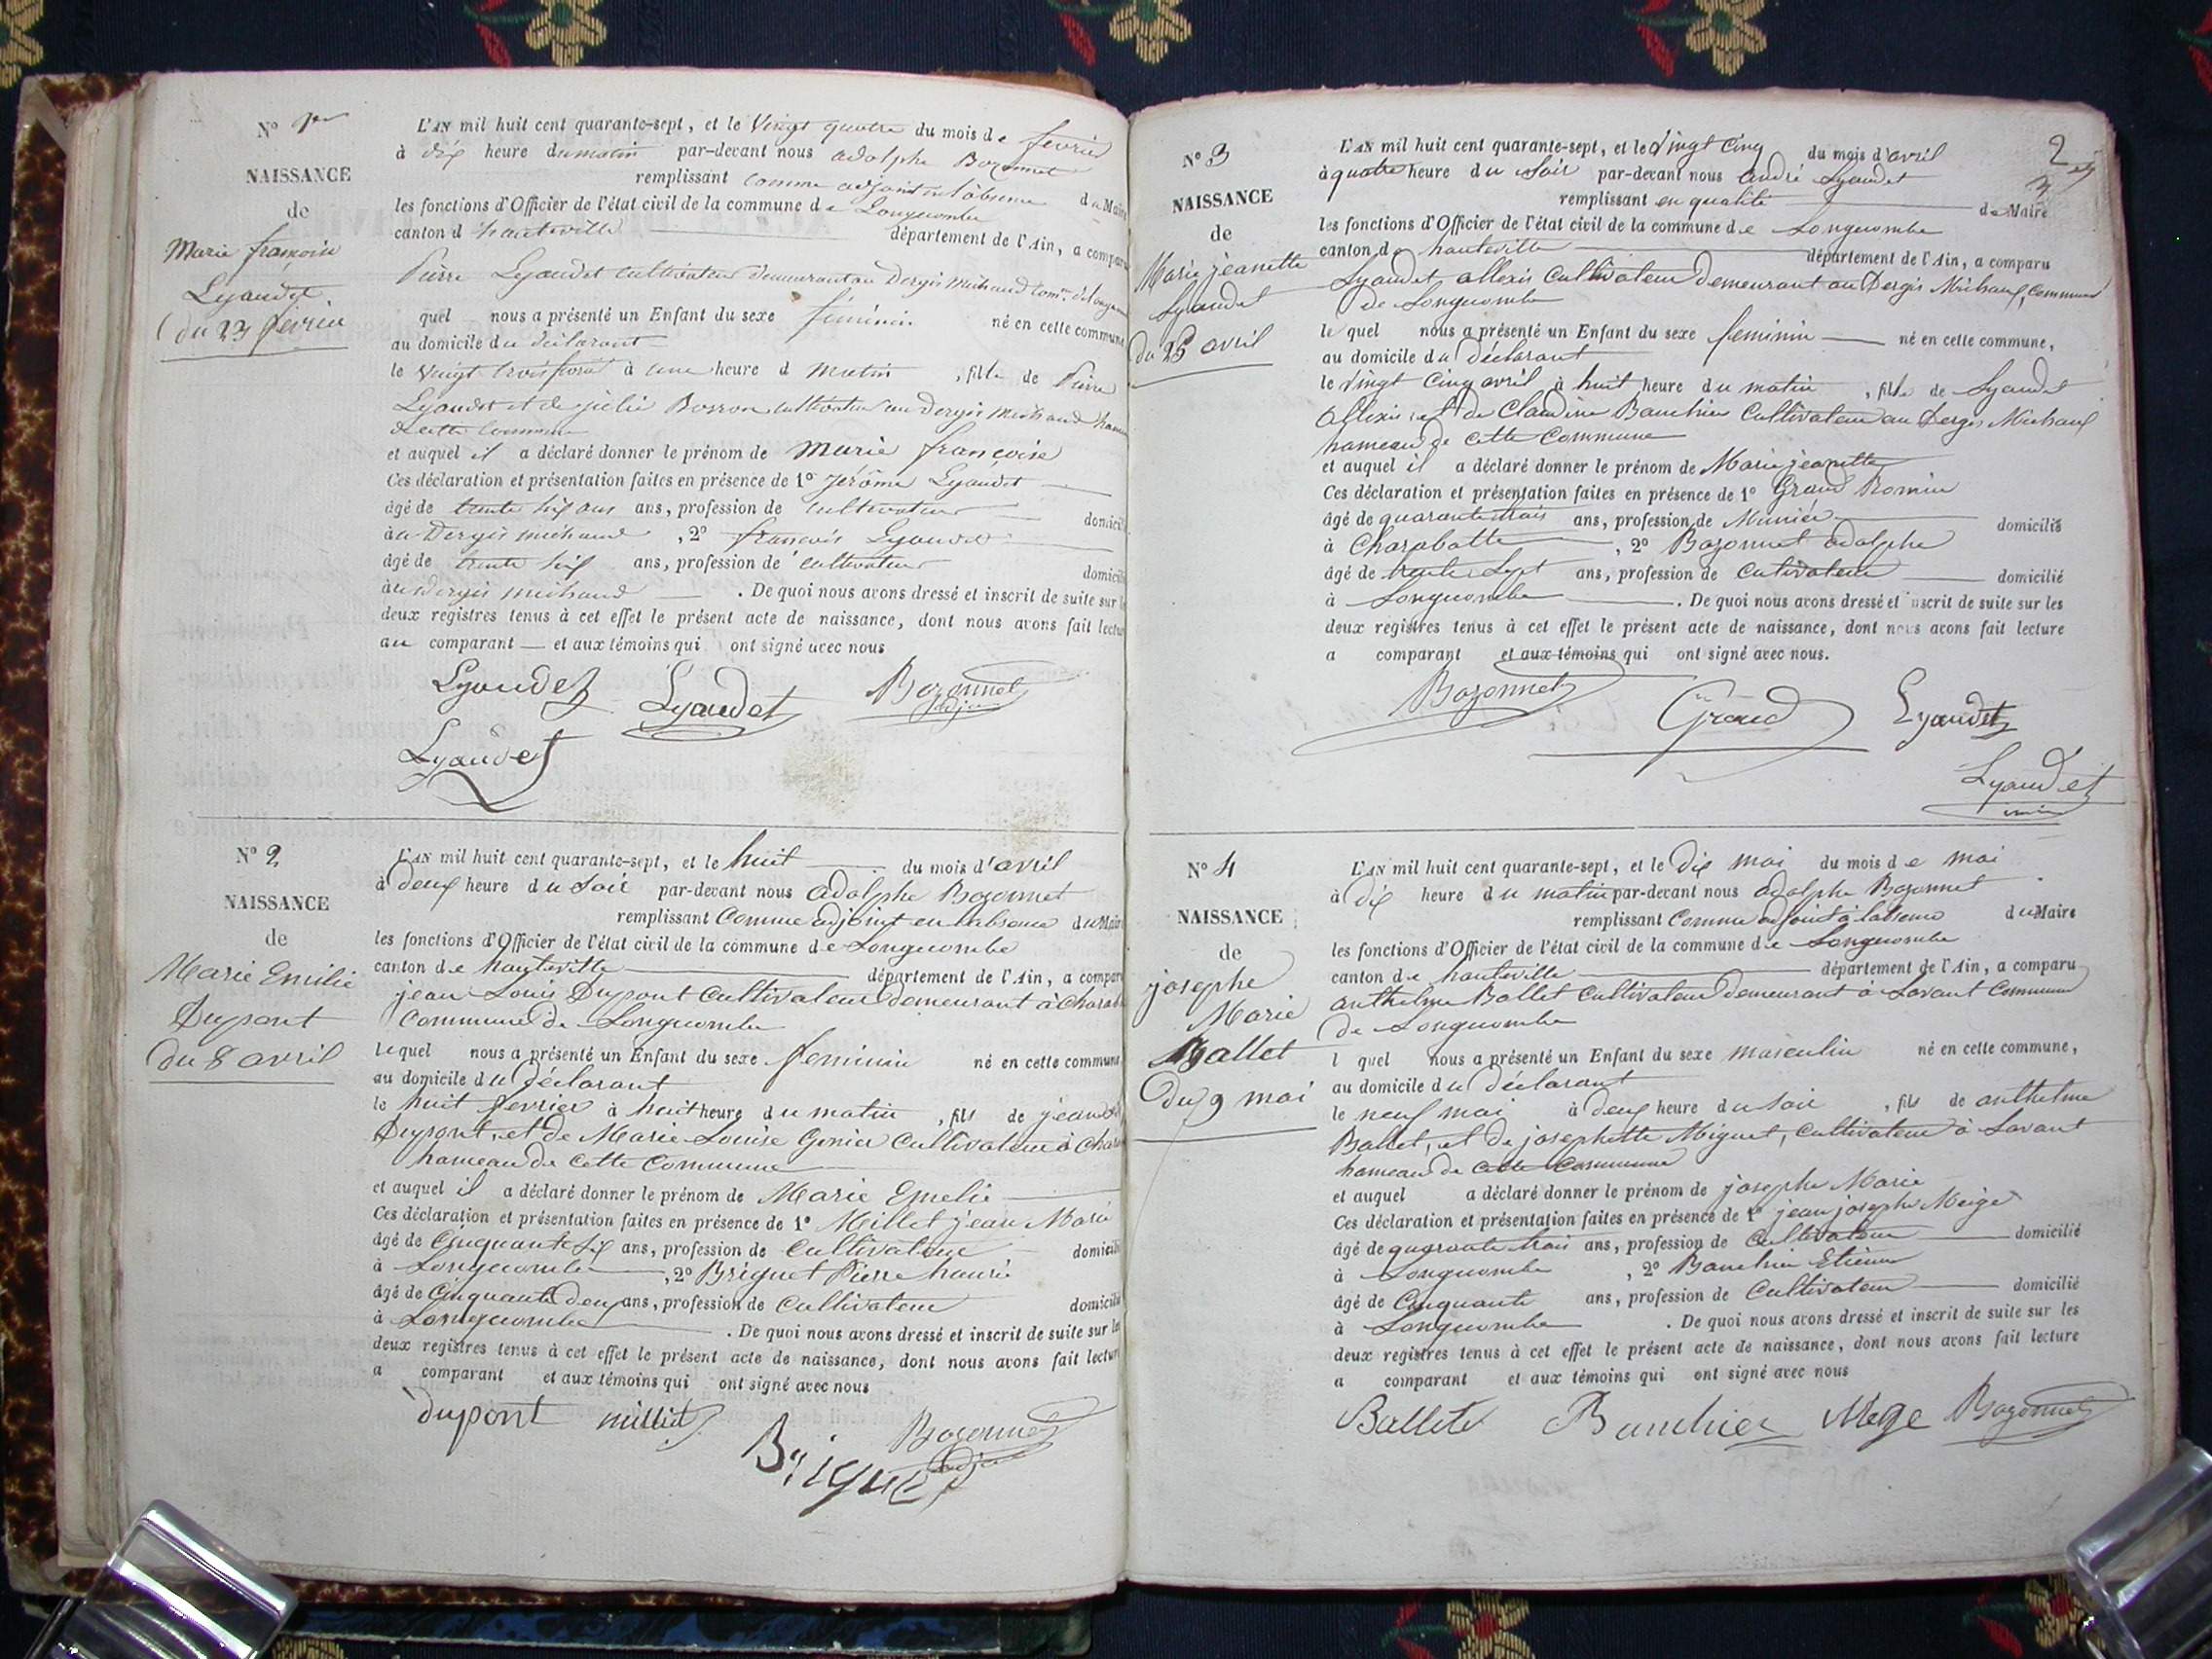 N° 1er
NAISSANCE
de
Marie françoise
Lyaudet
du 23 février
L'AN mil huit cent quarante-sept, et le Vingt quatre du mois de février
à dix heure du matin par-devant nous adolphe Bozonnet
remplissant comme adjoint en l'absence du Maire
les fonctions d'Officier de l'état civil de la commune de Longecombe
canton d hauteville département de l'Ain, a comparu
Pierre Lyaudet cultivateur demeurant au Dergis Michaud
quel nous a présenté un Enfant du sexe féminin né en cette commune
au domicile du déclarant
le Vingt trois à une heure d matin , fille de Pierre
Lyaudet et de julie cultivateur au dergis michaud
de cette commune
et auquel il a déclaré donner le prénom de Marie françoise
Ces déclaration et présentation faites en présence de 1° Jérôme Lyaudet
âgé de trente six ans ans, profession de cultivateur domicilié
à au Dergis michaud , 2° françois Lyaudet
âgé de trente six ans, profession de cultivateur domicilié
à au dergis michaud . De quoi nous avons dressé et inscrit de suite sur les
deux registres tenus à cet effet le présent acte de naissance, dont nous avons fait lecture
au comparant et aux témoins qui ont signé avec nous
Lyaudet Lyaudet Bozonnet
adjoint
Lyaudet
N° 2
NAISSANCE
de
Marie Emilie
Dupont
du 8 avril
L'AN mil huit cent quarante-sept, et le huit du mois d'avril
à deux heure du Soir par-devant nous adolphe Bozonnet
remplissant Comme adjoint en labsence du Maire
les fonctions d'Officier de l'état civil de la commune de Longecombe
canton de hauteville département de l'Ain, a comparu
jean Louis Dupont Cultivateur demeurant à
Commune de Longecombe
lequel nous a présenté un Enfant du sexe feminin né en cette commune
au domicile du déclarant
le huit fevrier à huit heure du matin , fils de jean
Dupont, et de Marie Louise Genier Cultivateur à
hameau de cette Commune
et auquel il a déclaré donner le prénom de Marie Emelie
Ces déclaration et présentation faites en présence de 1° Millet jean Marie
âgé de Cinquante six ans, profession de Cultivateur domicilié
à Longecombe , 2° Briguet Pierre
âgé de Cinquante deux ans, profession de Cultivateur domicilié
à Longecombe . De quoi nous avons dressé et inscrit de suite sur les
deux registres tenus à cet effet le présent acte de naissance, dont nous avons fait lecture
a comparant et aux témoins qui ont signé avec nous
dupont millet Bozonnet
Briguet adjoint
2
N° 3
NAISSANCE
de
Marie jeanette
Lyaudet
du 25 avril
L'AN mil huit cent quarante-sept, et le Vingt Cinq du mois d'avril
à quatre heure du Soir par-devant nous andré Lyaudet
remplissant en qualité de Maire
les fonctions d'Officier de l'état civil de la commune de Longecombe
canton de hauteville département de l'Ain, a comparu
Lyaudet allexis Cultivateur Demeurant au Dergis Michaud, commune
de Longecombe
le quel nous a présenté un Enfant du sexe feminin né en cette commune,
au domicile du Déclarant
le Vingt Cinq avril à huit heure du matin , fille de Lyaudet
allexis et de Claudine Bauchier Cultivateur au Dergis Michaud
hameau de cette Commune
et auquel il a déclaré donner le prénom de Marie jeanette
Ces déclaration et présentation faites en présence de 1° Grand Romin
âgé de quarante trois ans, profession de Munier domicilié
à Charabotte , 2° Bozonnet adolphe
âgé de trente Sept ans, profession de Cultivateur domicilié
à Longecombe . De quoi nous avons dressé et inscrit de suite sur les
deux registres tenus à cet effet le présent acte de naissance, dont nous avons fait lecture
a comparant et aux témoins qui ont signé avec nous.
Bozonnet Grand Lyaudet
Lyaudet
N° 4
NAISSANCE
de
josephe
Marie
Ballet
du 9 mai
L'AN mil huit cent quarante-sept, et le Dix mai du mois de mai
à dix heure du matin par-devant nous adolphe Bozonnet
remplissant Comme adjoint à labsence du Maire
les fonctions d'Officier de l'état civil de la commune de Longecombe
canton de hauteville département de l'Ain, a comparu
anthelme Ballet Cultivateur Demeurant à Lavant Commune
de Longecombe
l quel nous a présenté un Enfant du sexe masculin né en cette commune,
au domicile du déclarant
le neuf mai à deux heure du Soir , fils de anthelme
Ballet, et de josephette Miguet, Cultivateur à Lavant
hameau de cette Commune
et auquel a déclaré donner le prénom de josephe Marie
Ces déclaration et présentation faites en présence de 1° jean joseph Meige
âgé de quarante trois ans, profession de Cultivateur domicilié
à Longecombe , 2° Bauchier Etienne
âgé de Cinquante ans, profession de Cultivateur domicilié
à Longecombe . De quoi nous avons dressé et inscrit de suite sur les
deux registres tenus à cet effet le présent acte de naissance, dont nous avons fait lecture
a comparant et aux témoins qui ont signé avec nous
Ballet Bauchier Mege Bozonnet